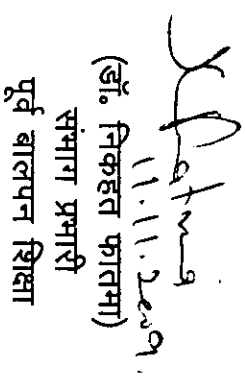 11.11.2019
(डॉ० निकहत फातमा)
संभाग प्रभारी
पूर्व बालपन शिक्षा